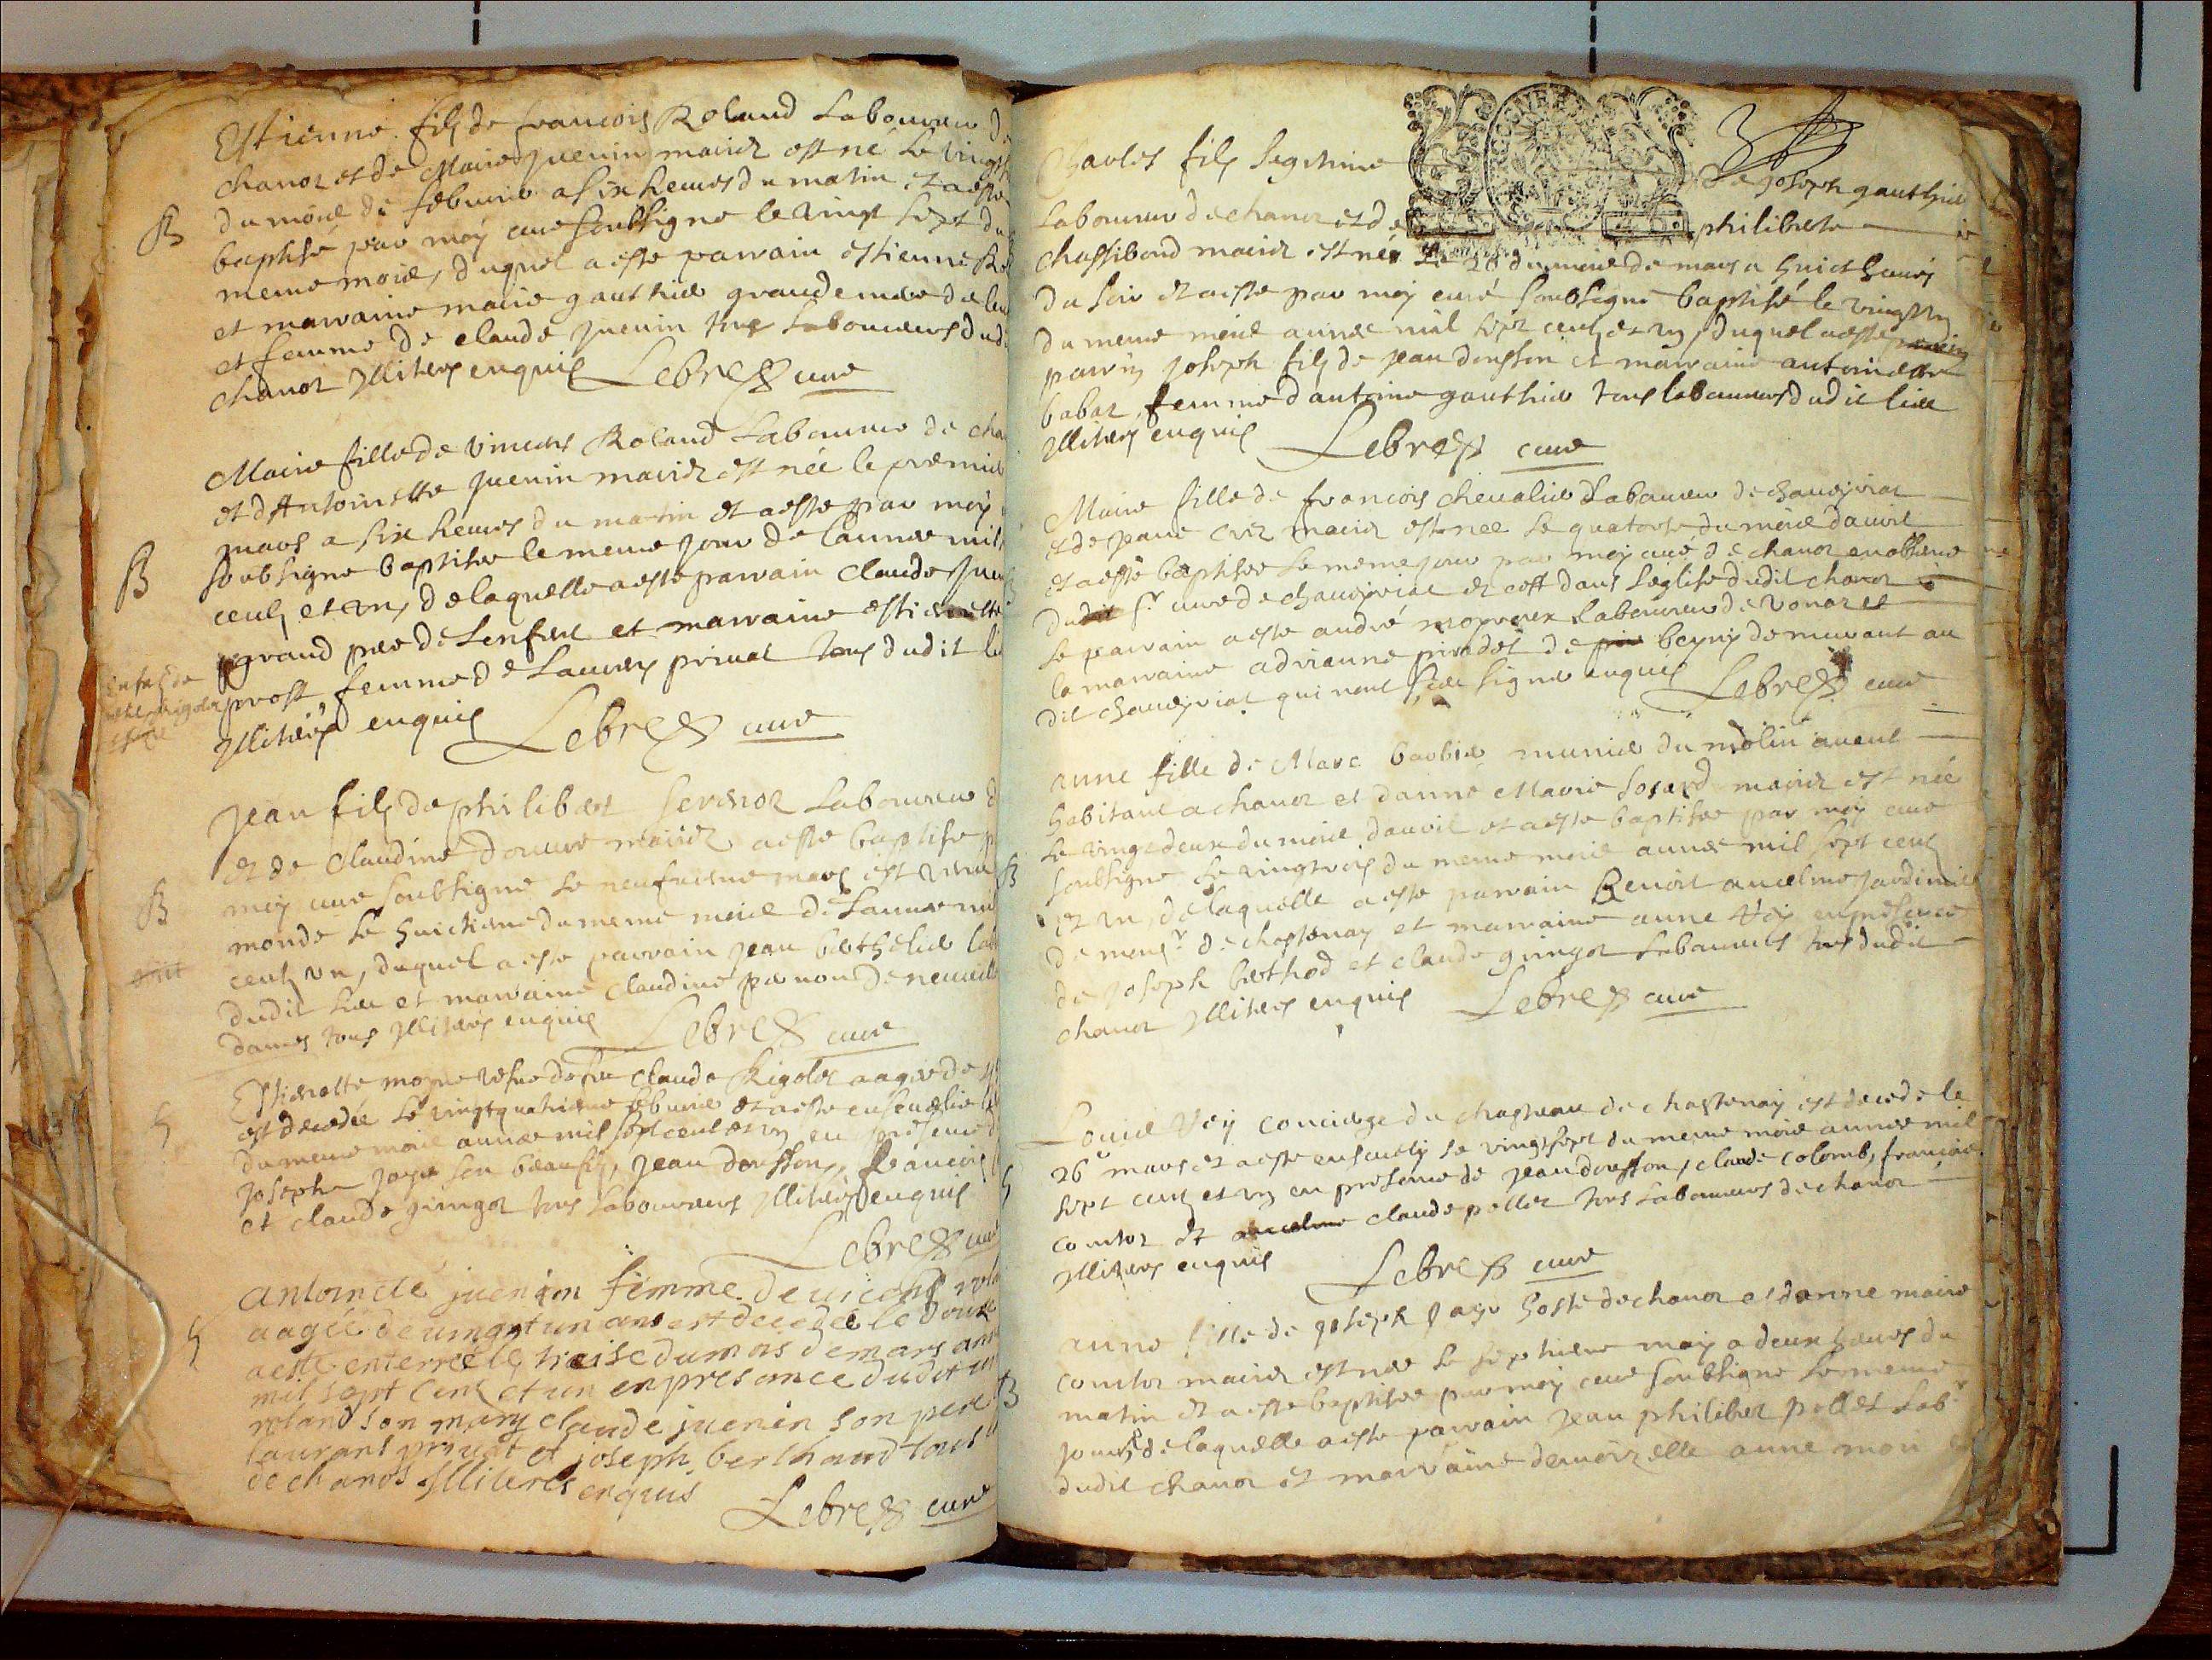 Estienne fils de francois Roland Laboureur de
chanoz et de Marie Juenin mariez est né Le vingt
du mois de febvrier a six heures du matin et a esté
B
baptisé par moy curé soubsigné le vingt sept du
meme mois, duquel a esté parrain estienne
et marraine marie gauthier grande mere de
et femme de claude Juenin tous Laboureurs dud
chanoz Illiteres enquis Lebre curé
Marie fille de vincens Roland Laboureur de cha
et dAntoinette Juenin mariez est née le premier
mars a six heures du matin et a esté par moy
B
soubsigné baptisée le meme jour de lannée mil
cens et un, de laquelle a esté parrain claude Juen
grand pere de Lenfant et marraine estiennette
prost femme de Laurens privat tous dudit li
Illiteres enquis Lebre curé
Jean fils de philibert Servinoz Laboureur d
et de claudine mariez a esté baptisé p
B
moy curé soubsigné Le neufiesme mars est venu
monde Le huictieme du meme mois de Lannée mil
cens un, duquel a esté parrain Jean berthelier
dudit lieu et marraine claudine de neuville
dames tous Illiteres enquis Lebre curé
Estienette vefve de feu claude Rigolet aagée de
est decedée Le vingtquatrieme febvrier et a esté ensevelie
du meme mois année mil sept cens et un en presence
Joseph son beaufils, Jean donsson, francois
et claude gringoz tous Laboureurs Illiteres enquis
Lebre curé
antoinete juenin femme de vicent rola
aagée de vingt un ans est decedée le douze
a esté enterree le treise du mois de mars an
mil sept cens et un en presance dudit
roland son mary claude juenin son pere
laurans privat et joseph berthaud tous
de chanos Illiteres enquis
Lebre curé
Charles fils legitime de Joseph gauthier
Laboureur de chanoz et de philiberte
chassibond mariez est né Le 20 du mois de mars a huict heures
du soir et a esté par moy curé soubsigné baptisé le vingt un
du meme mois année mil sept cens et un, duquel a esté
parrin Joseph fils de Jean donsson et marraine antoinette
babaz femme dantoine gauthier tous laboureurs dudit lieu
Illiteres enquis Lebre curé
Marie fille de francois chevalier Laboureur de chaveyriat
et de mariez est née Le quatorse du mois davril
et a esté baptisée Le meme jour par moy curé de chanoz en absence
du Sr curé de chaveyriat et cest dans Leglise dudit chanoz
Le parrain a esté andré Laboureur de vonaz et
la marraine adrianne de beyny demeurant au
dit chaveyriat qui nont sceu signer enquis Lebre curé
anne fille de Marc barbier munier du molin a vent
habitant a chanoz et danne Marie mariez est née
Le vingt deux du mois davril et a esté baptisée par moy curé
B
soubsigné Le vingt trois du meme mois année mil sept cens
et un, de laquelle a esté parrain Benoit ancelme Jardinier
de monsr de chastenay et marraine anne Vey en presence
de Joseph berthod et claude gringoz Laboureurs tous dudit
chanoz Illiteres enquis Lebre curé
Louise Vey concierge du chasteau de chastenay est decede le
26e mars et a esté ensevely Le vingt sept du meme mois année mil
sept cens et un en presence de Jean donsson, claude colomb, francois
comtoz et claude pellet tous Laboureurs de chanoz
Illiteres enquis Lebre curé
anne fille de Joseph hoste de chanoz et danne marie
comtoz mariez est née Le septieme may a deux heures du
matin et a esté baptisée par moy curé soubsigné Le meme
B
jour, de laquelle a esté parrain Jean philibert pellet Labr
dudit chanoz et marraine demoizelle anne